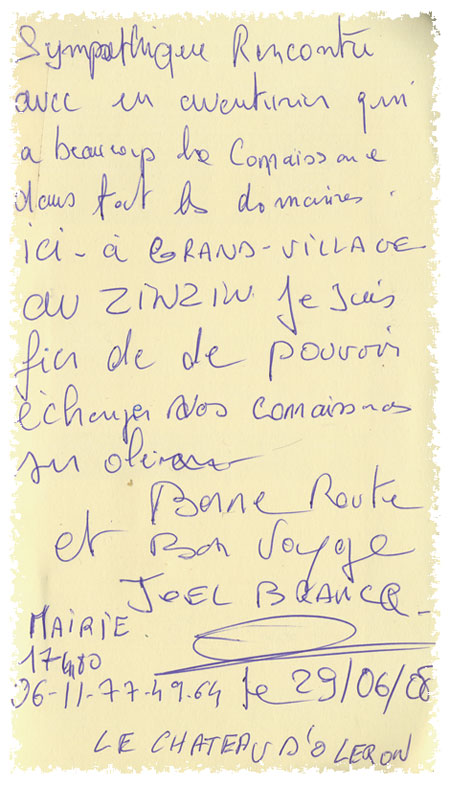 Sympathique Rencontre
avec un aventurier qui
a beaucoup de Connaissance
dans tout les domaines.
ici - à GRAND-VILLAGE
au ZINZIN Je suis
fier de de pouvoir
échanger Nos connaissances
sur
Bonne Route
et Bon Voyage
JOEL BRANCQ
MAIRIE
17480
06-11-77-49-64 le 29/06/08
LE CHATEAU D'OLERON